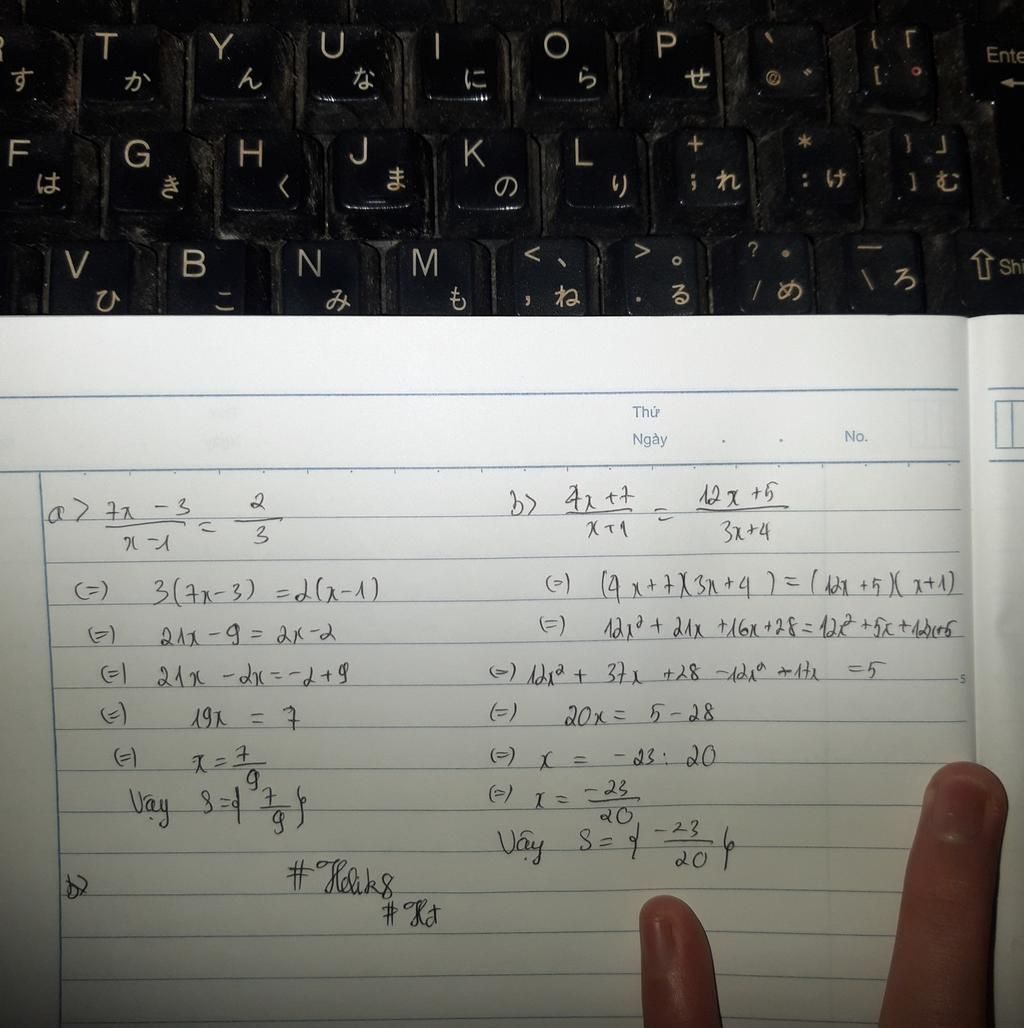 T Y U I O P Enter
す か ん な に ら せ @ [
F G H J K L + *
は き く ま の り ; れ : け ] む
V B N M < 、 > 。 ? ・ Shi
ひ こ み も , ね . る / め \ ろ
Thứ
Ngày . . No.
a> (7x - 3)/(x - 1) = 2/3
(=) 3(7x-3) = 2(x-1)
(=) 21x - 9 = 2x - 2
(=) 21x - 2x = -2 + 9
(=) 19x = 7
(=) x = 7/9
Vậy S = { 7/9 }
b> (4x + 7)/(x + 1) = (12x + 5)/(3x + 4)
(=) (4x + 7)(3x + 4) = (12x + 5)(x + 1)
(=) 12x² + 21x + 16x + 28 = 12x² + 5x + 12x + 5
(=) 12x² + 37x + 28 - 12x² - 17x = 5
(=) 20x = 5 - 28
(=) x = -23 : 20
(=) x = -23/20
Vậy S = { -23/20 }
b>
5